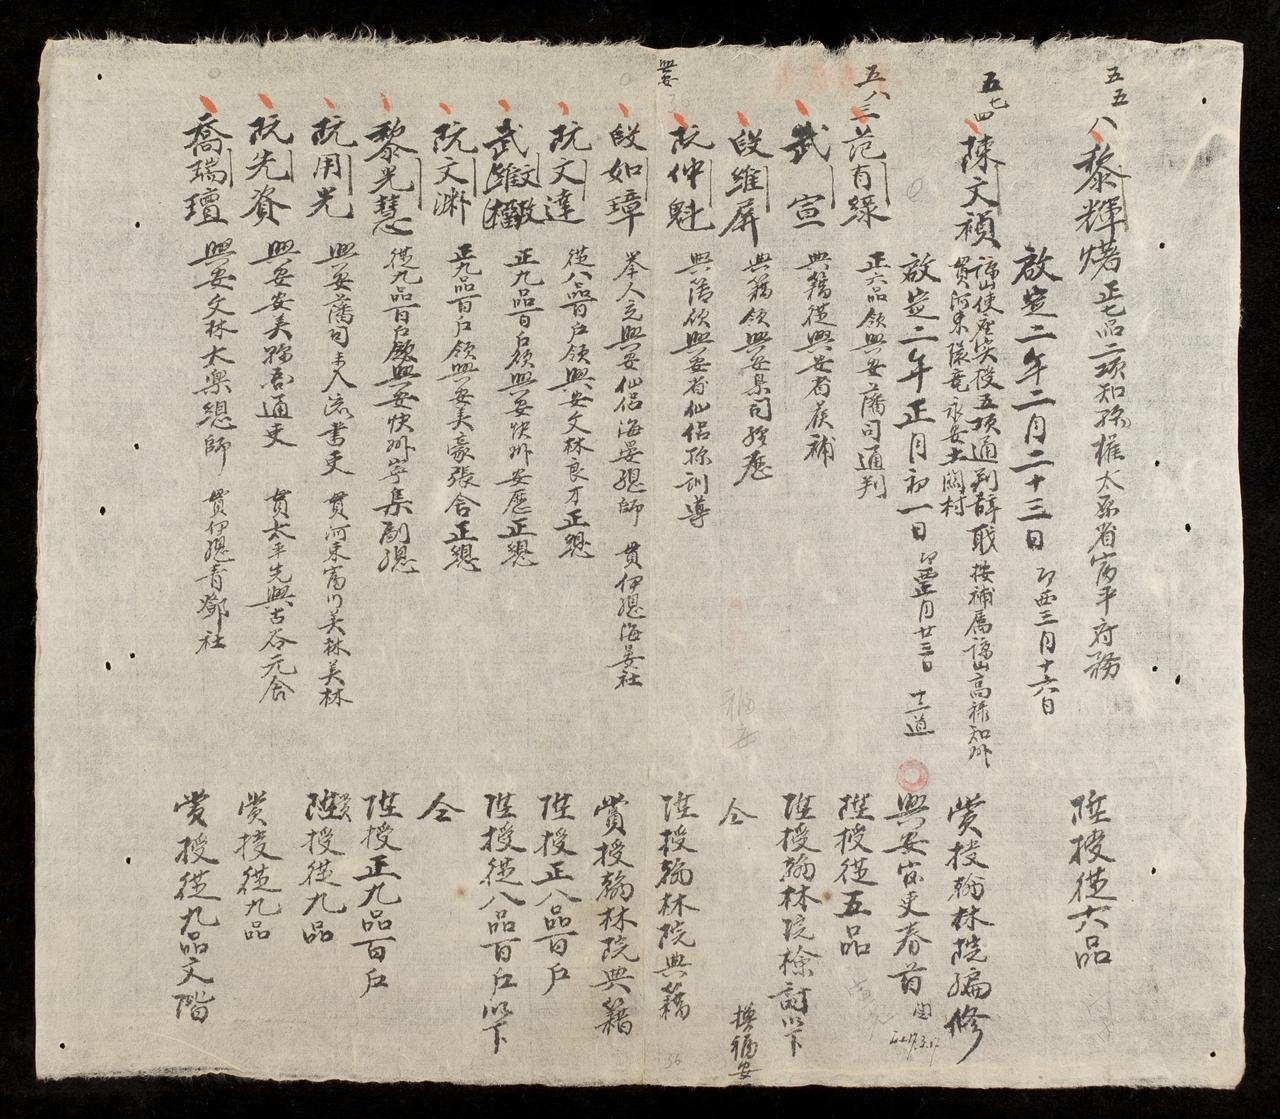 五五八 黎輝𤏸 正七品二項知縣權太原省富平府務 陞授從六品
啟定二年二月二十三日 卯酉三月十六日
五七四 陳文禎 諒山使座奀役五項通判辞職 按補属諒山高祿知州 賞授翰林院編修
貫河東陵竜永安土関村
啟定二年正月初一日 卯酉正月廿三日 十二道 興安官吏春首
五八三 范有綠 正六品領興安藩司通判 陞授從五品
武宣 典籍從興安省候補 陞授翰林院檢討以下
段維屏 典籍領興安臬司經歷 仝
阮仲魁 典簿領興安省仙侣縣訓導 陞授翰林院典籍
興安
段如璋 举人充興安仙侣海晏總師 貫伊總海晏社 賞授翰林院典籍
阮文達 從八品百户領興安文林良才正總 陞授正八品百户
武維文 正九品百户領興安快州安歷正總 陞授從八品百户以下
阮文渊 正九品百户領興安美豪張舍正總 仝
黎光慧 從九品百户領興安快州寧集副總 陞授正九品百户
阮用光 興安藩司未入流書吏 貫河東富川美林美林 賞授從九品
阮先資 興安安美縣吞通吏 貫太平先興古谷元舍 賞授從九品
喬瑞璮 興安文林太樂總師 貫伊總青鄧社 賞授從九品文階
福安